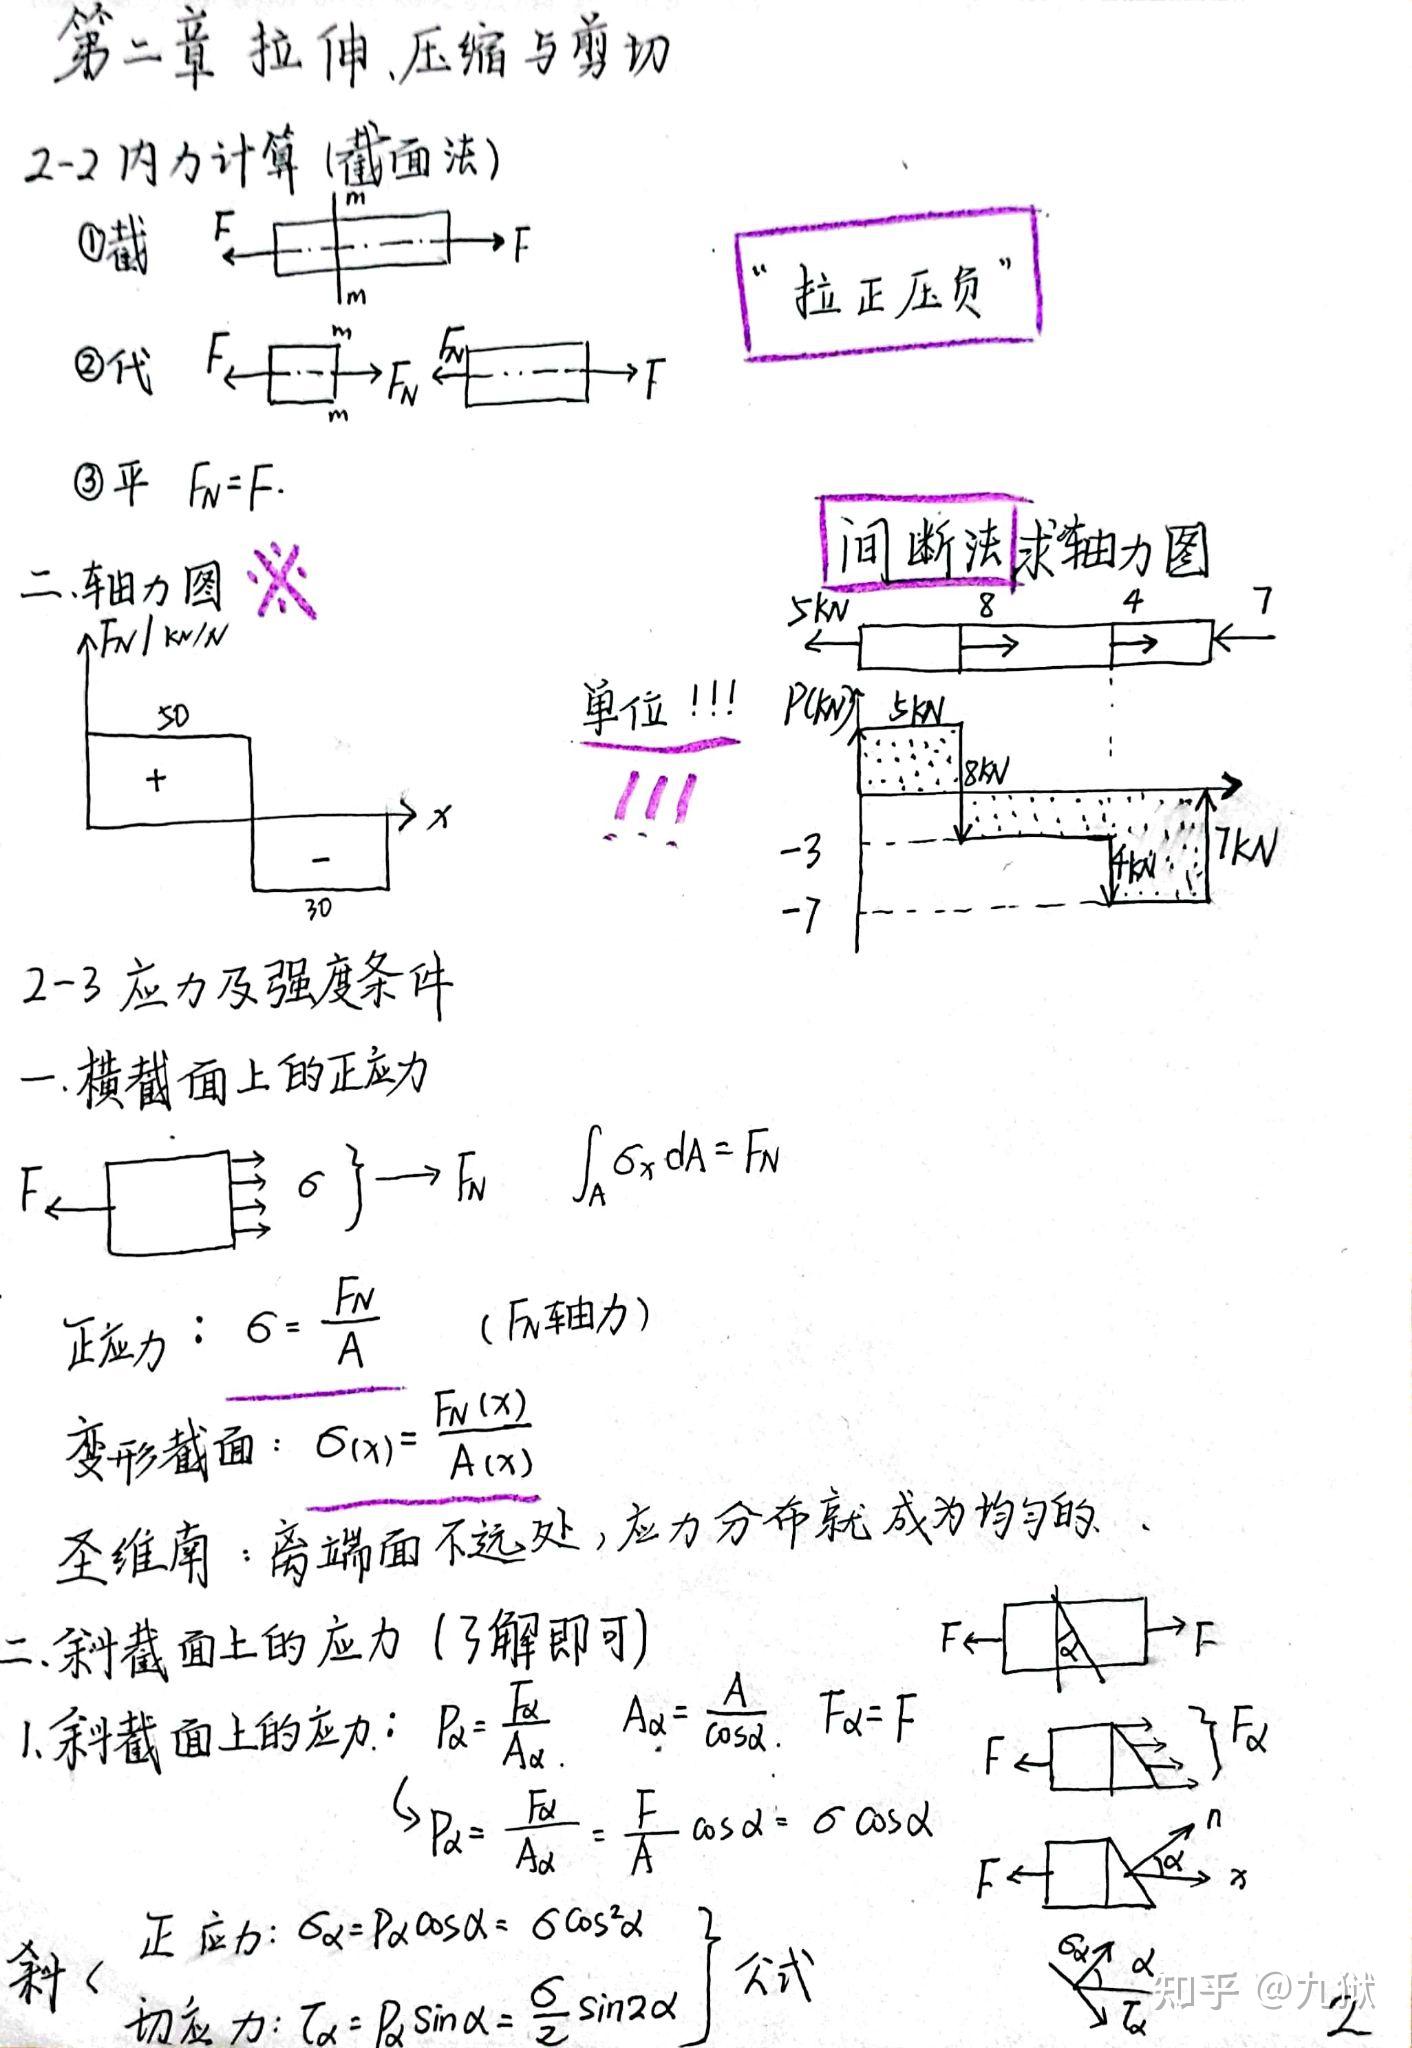 第二章 拉伸、压缩与剪切
2-2 内力计算 (截面法)
①截 F m m F
“拉正压负”
②代 F m m FN FN F
③平 FN=F.
间断法求轴力图
二、轴力图 ※
5KN 8 4 7
FN/KN/N
50
+
-
30
x
单位!!!
!!!
P(KN)
5KN
8KN
-3
4KN
7KN
-7
2-3 应力及强度条件
一.横截面上的正应力
F σ } → FN ∫A σx dA = FN
正应力: σ = FN/A (FN轴力)
变形截面: σ(x) = FN(x)/A(x)
圣维南: 离端面不远处,应力分布就成为均匀的.
二.斜截面上的应力 (了解即可)
F α F
1.斜截面上的应力: Pα = Fα/Aα. Aα = A/cosα. Fα = F
F } Fα
↳ Pα = Fα/Aα = F/A cosα = σ cosα
F n α x
斜< 正应力: σα = Pα cosα = σcos²α
切应力: τα = Pα sinα = σ/2 sin2α } 公式
σα α τα
知乎 @九狱
2